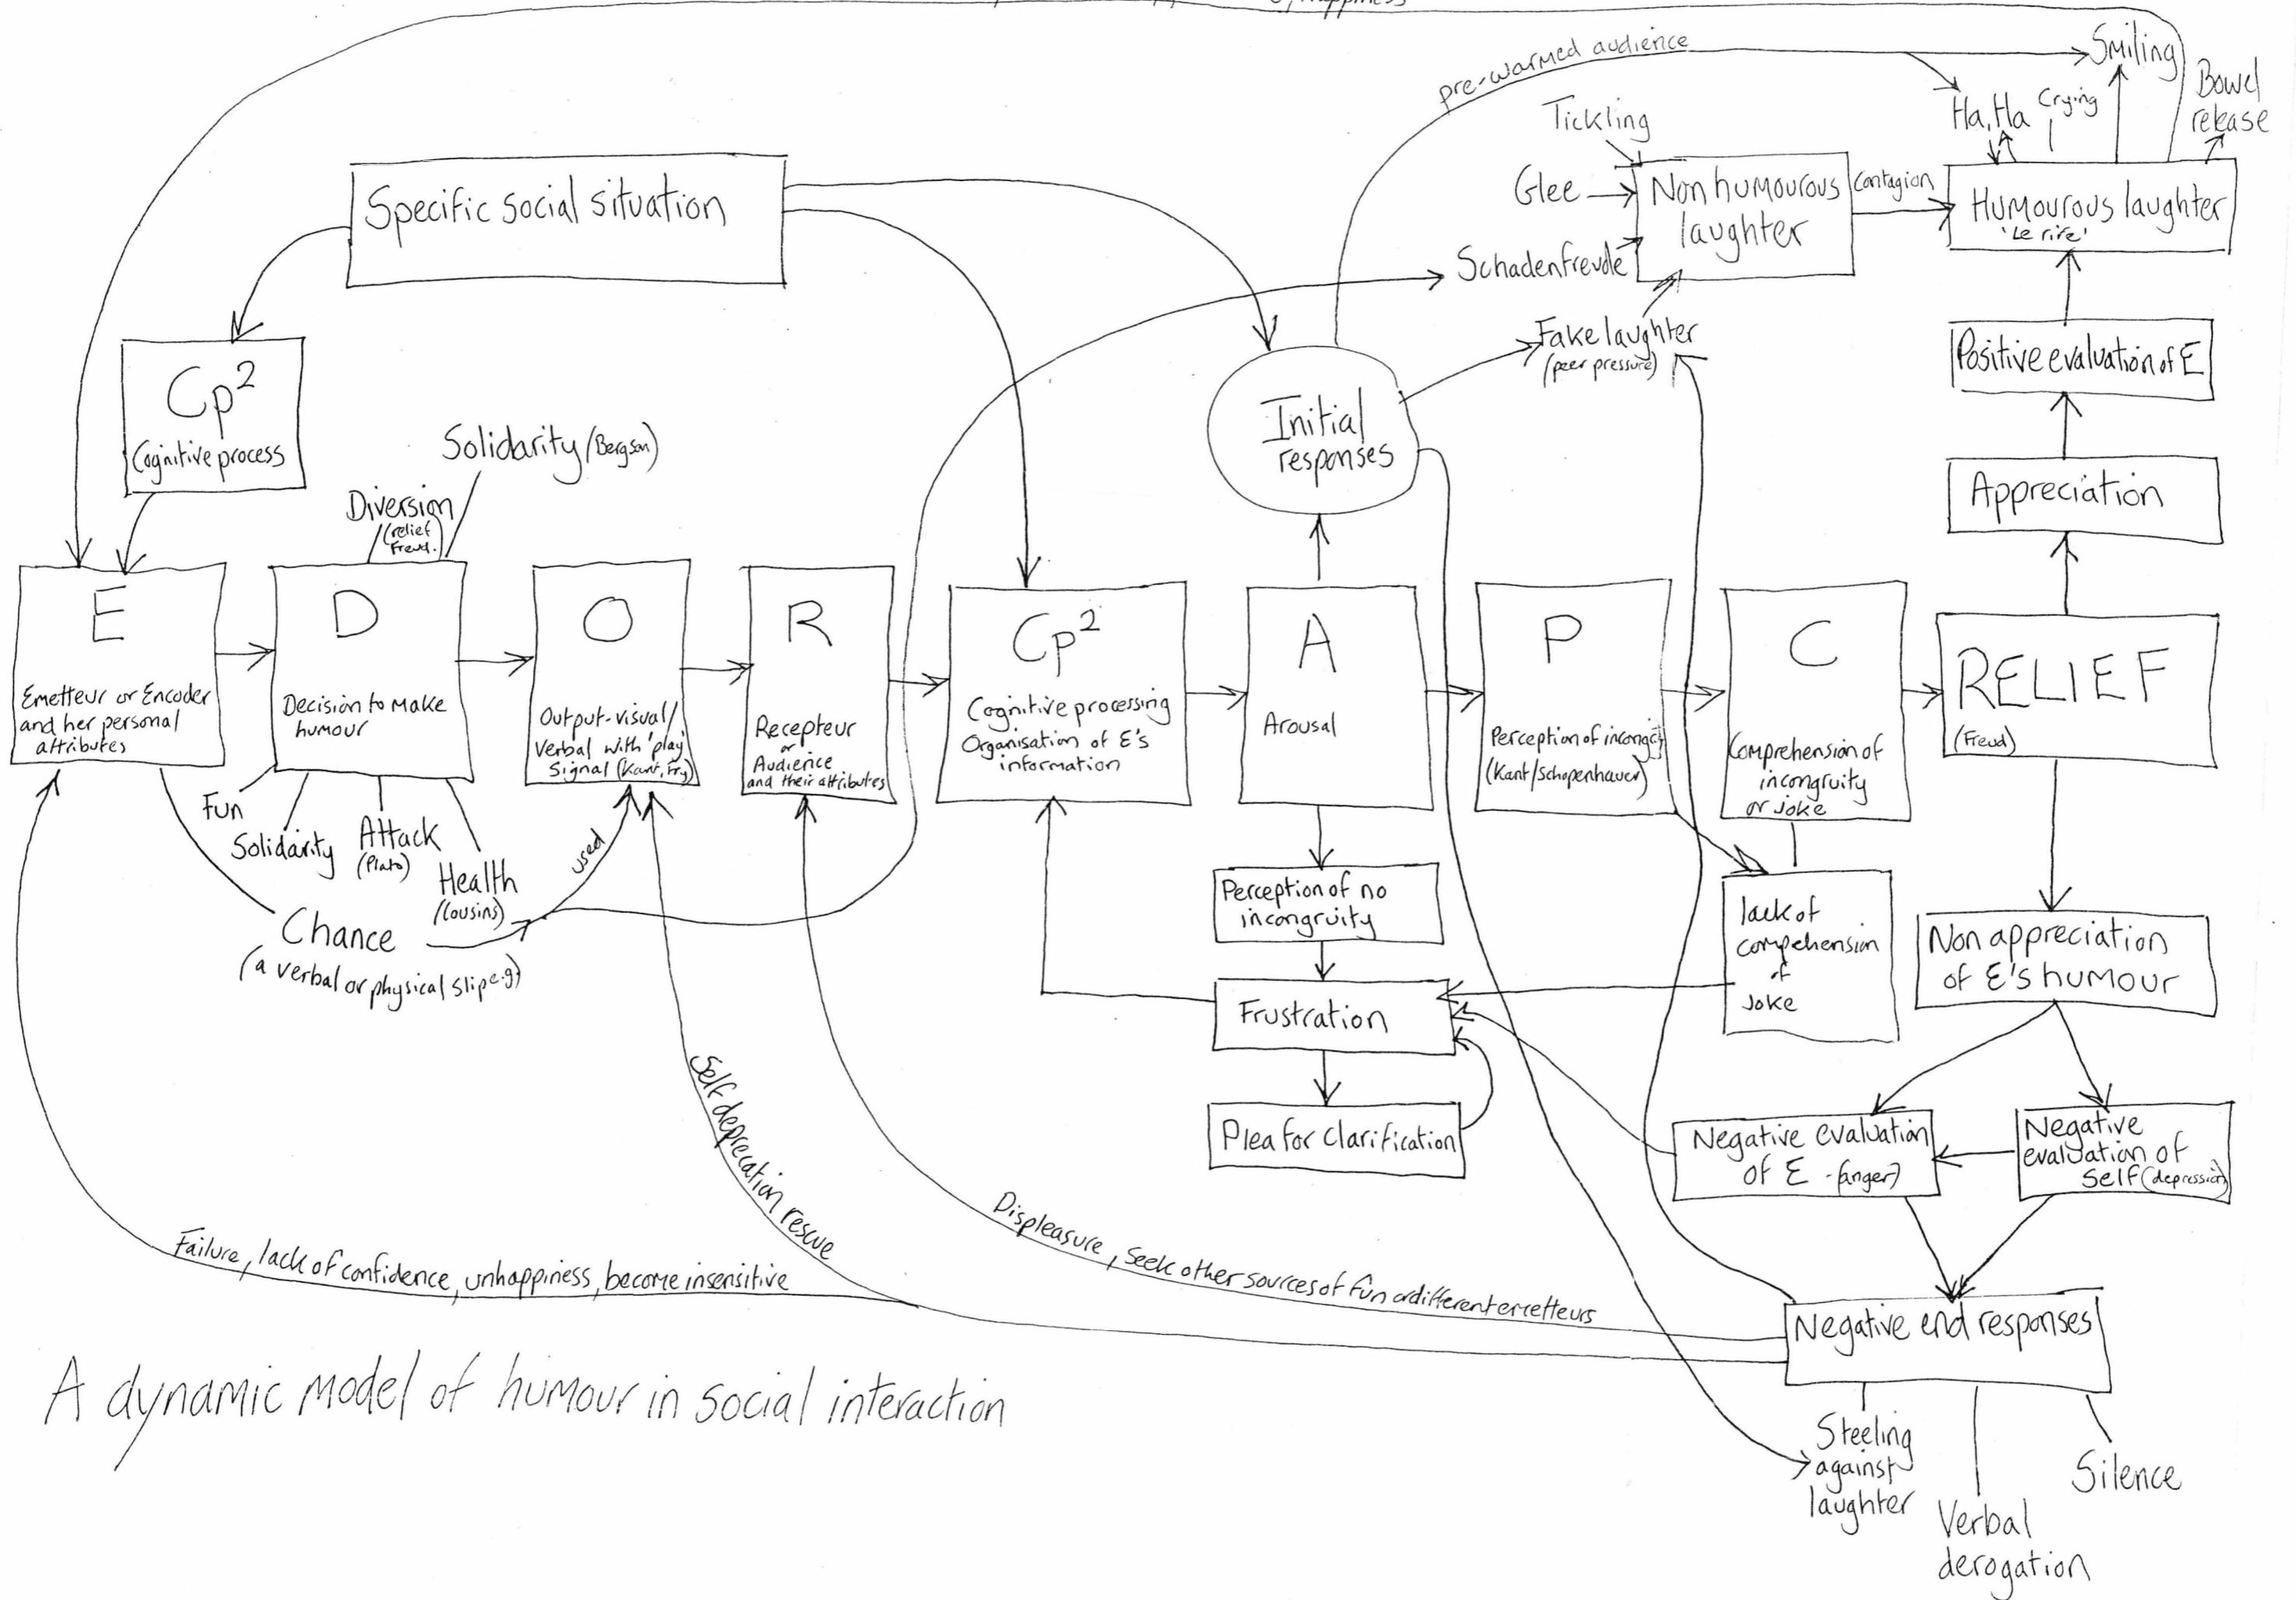 happiness
pre-warmed audience
Smiling
Bowel
release
Ha, Ha
Crying
Tickling
Glee
Schadenfreude
Non humourous
laughter
Contagion
Humourous laughter
'Le rire'
Specific social situation
Fake laughter
(peer pressure)
Positive evaluation of E
Cp²
Cognitive process
Initial
responses
Solidarity (Bergson)
Diversion
(relief
Freud.)
Appreciation
E
Emetteur or Encoder
and her personal
attributes
D
Decision to make
humour
O
Output-visual/
Verbal with 'play'
Signal (Kant, Fry)
R
Recepteur
or
Audience
and their attributes
Cp²
Cognitive processing
Organisation of E's
information
A
Arousal
P
Perception of incongity
(Kant/Schopenhauer)
C
Comprehension of
incongruity
or joke
RELIEF
(Freud)
Fun
Solidarity
Attack
(Plato)
Health
(Cousins)
used
Chance
(a verbal or physical slip e.g)
Perception of no
incongruity
Frustration
Plea for clarification
lack of
compehension
of
joke
Non appreciation
of E's humour
Negative evaluation
of E - (anger)
Negative
evaluation of
Self (depression)
Self deprecation rescue
Displeasure, seek other sources of fun or different emetteurs
Failure, lack of confidence, unhappiness, become insensitive
Negative end responses
A dynamic model of humour in social interaction
Steeling
against
laughter
Verbal
derogation
Silence